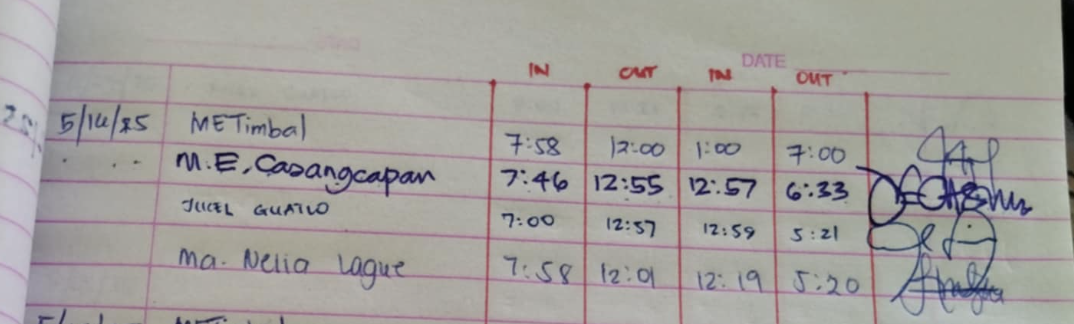 DATE
IN OUT IN OUT
5/14/25 METimbal 7:58 12:00 1:00 7:00
M.E. Casangcapan 7:46 12:55 12:57 6:33
JUCEL GUATLO 7:00 12:57 12:59 5:21
Ma. Nelia Lague 7:58 12:01 12:19 5:20
METimbal